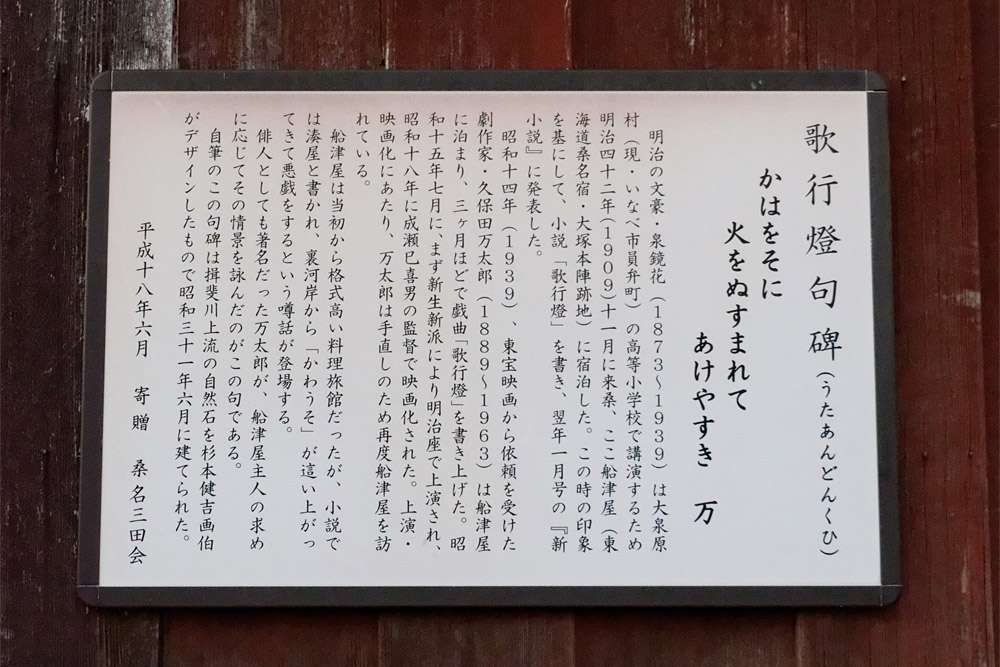 歌行燈句碑（うたあんどんくひ）
かはをそに
火をぬすまれて
あけやすき　万
明治の文豪・泉鏡花（1873～1939）は大泉原
村（現・いなべ市員弁町）の高等小学校で講演するため
明治四十二年（1909）十一月に来桑、ここ船津屋（東
海道桑名宿・大塚本陣跡地）に宿泊した。この時の印象
を基にして、小説「歌行燈」を書き、翌年一月号の『新
小説』に発表した。
昭和十四年（1939）、東宝映画から依頼を受けた
劇作家・久保田万太郎（1889～1963）は船津屋
に泊まり、三ヶ月ほどで戯曲「歌行燈」を書き上げた。昭
和十五年七月に、まず新生新派により明治座で上演され、
昭和十八年に成瀬巳喜男の監督で映画化された。上演・
映画化にあたり、万太郎は手直しのため再度船津屋を訪
れている。
船津屋は当初から格式高い料理旅館だったが、小説で
は湊屋と書かれ、裏河岸から「かわうそ」が這い上がっ
てきて悪戯をするという噂話が登場する。
俳人としても著名だった万太郎が、船津屋主人の求め
に応じてその情景を詠んだのがこの句である。
自筆のこの句碑は揖斐川上流の自然石を杉本健吉画伯
がデザインしたもので昭和三十一年六月に建てられた。
平成十八年六月　寄贈　桑名三田会